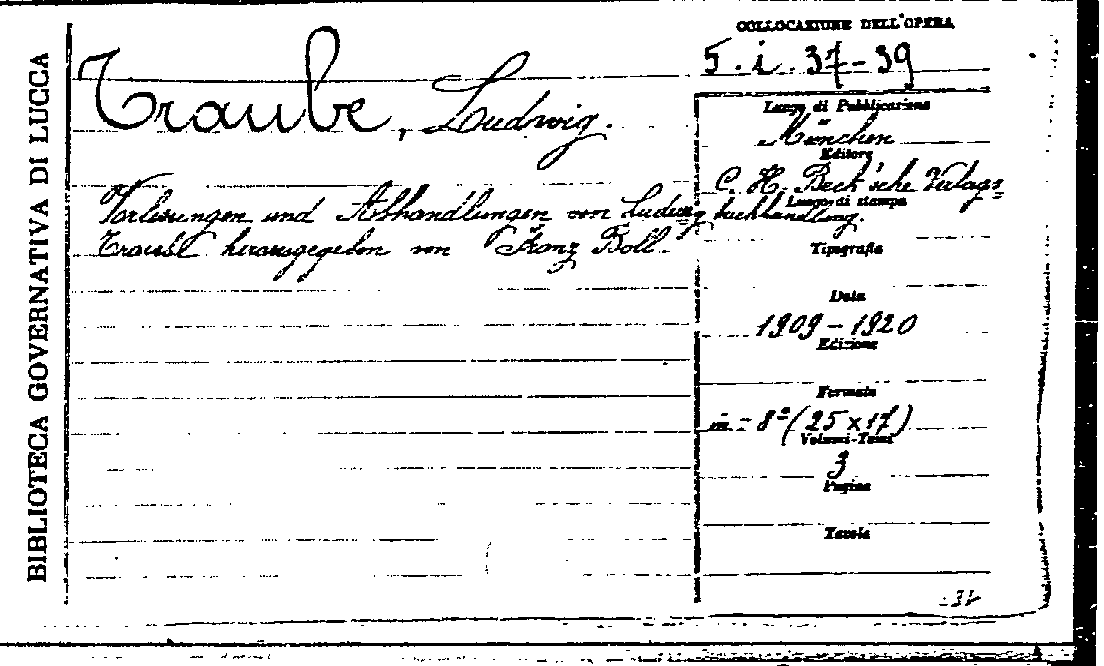 BIBLIOTECA GOVERNATIVA DI LUCCA
COLLOCAZIONE DELL'OPERA
5. i. 37-39
Traube, Ludwig.
Vorlesungen und Abhandlungen von Ludwig
Traube herausgegeben von Franz Boll.
Luogo di Pubblicazione
München
Editore
C. H. Beck'sche Verlags=
Luogo di stampa
buchhandlung.
Tipografia
Data
1909-1920
Edizione
Formato
in-8º (25 x 17)
Volumi-Tomi
3
Pagine
Tavole